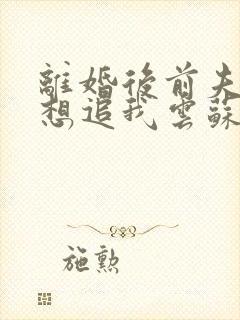 離婚後前夫
想追我雲蘇
施勲